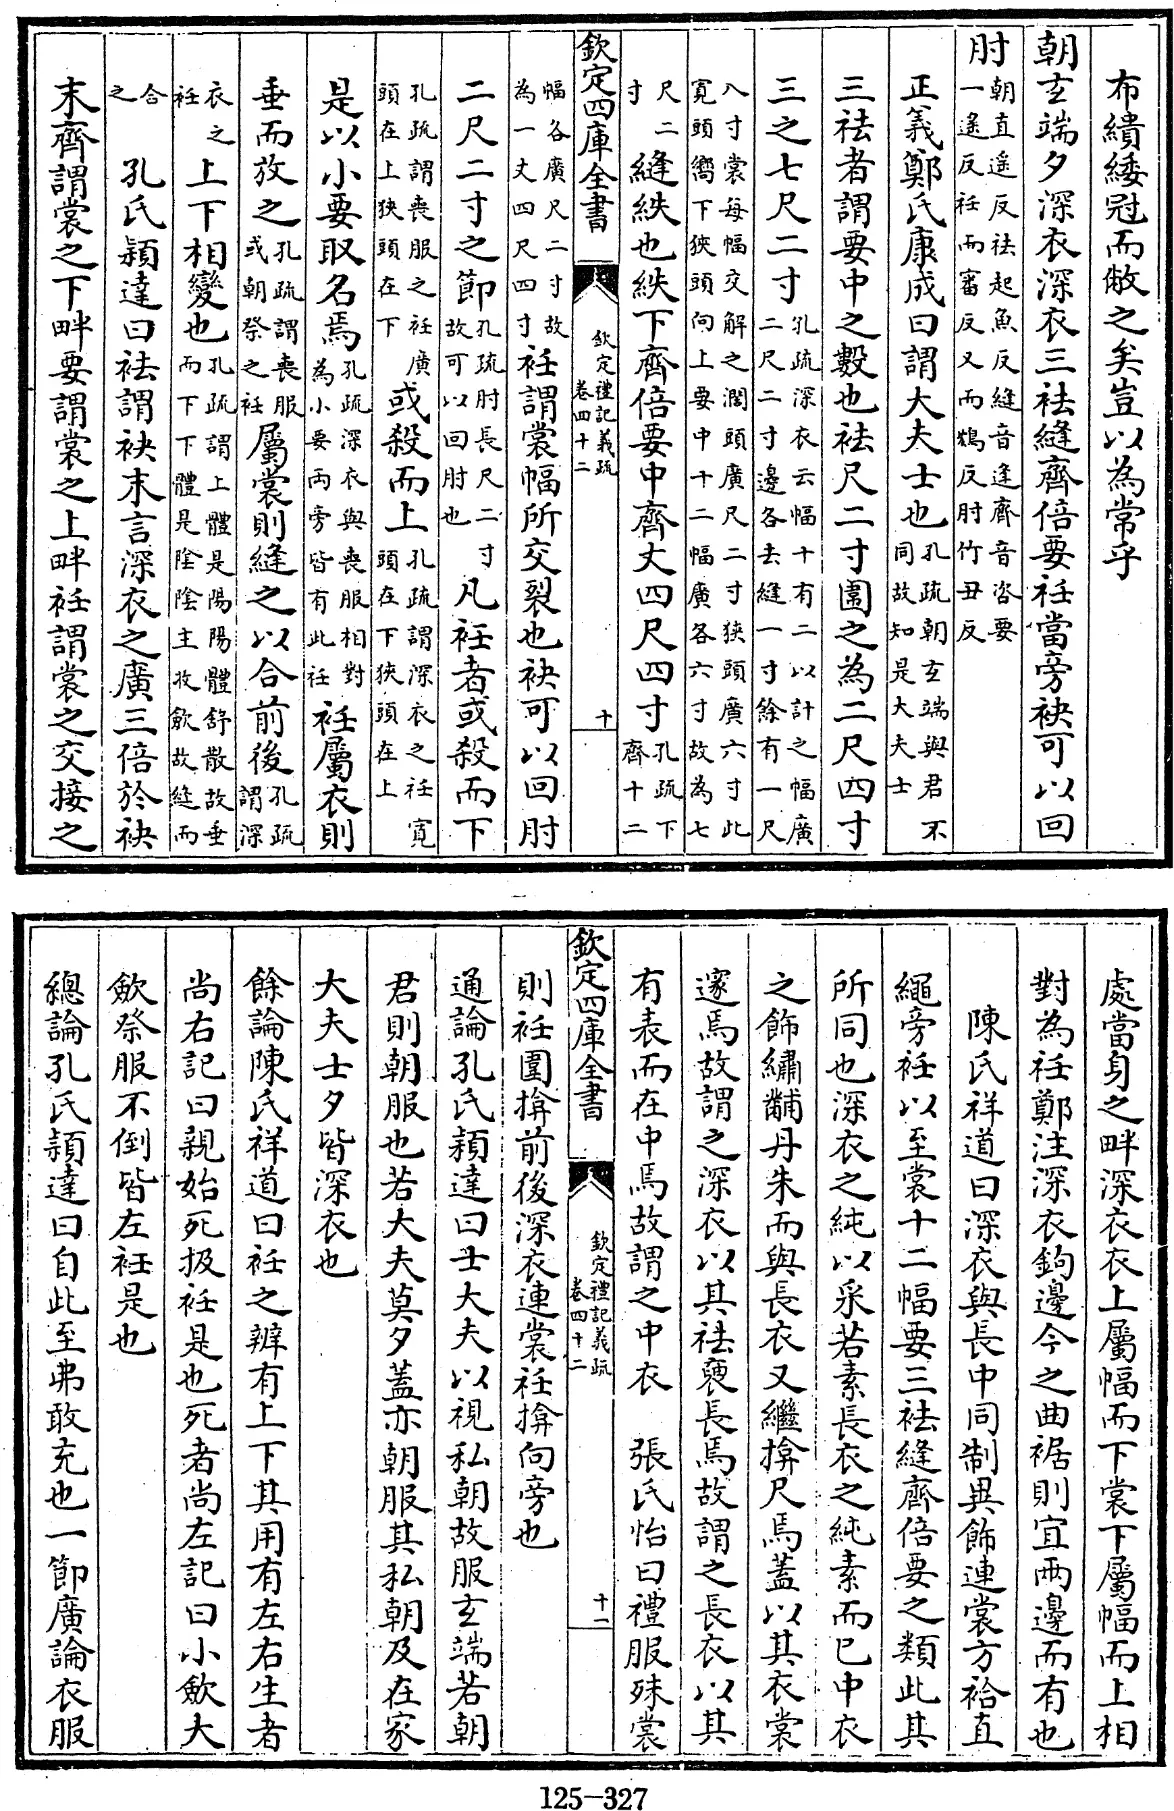 布繢緌冠而敝之矣豈以為常乎
朝玄端夕深衣深衣三袪縫齊倍要衽當旁袂可以回
肘朝直遥反袪起魚反縫音逢齊音咨要
一遥反衽而審反又而鴆反肘竹丑反
正義鄭氏康成曰謂大夫士也孔疏朝玄端與君不
同故知是大夫士
三袪者謂要中之數也袪尺二寸圍之為二尺四寸
三之七尺二寸孔疏深衣云幅十有二以計之幅廣
二尺二寸邊各去縫一寸餘有一尺
八寸裳每幅交解之濶頭廣尺二寸狹頭廣六寸此
寛頭嚮下狹頭向上要中十二幅廣各六寸故為七
尺二
寸縫紩也紩下齊倍要中齊丈四尺四寸孔疏下
齊十二
欽定四庫全書
欽定禮記義疏
卷四十二
十
幅各廣尺二寸故
為一丈四尺四寸衽謂裳幅所交裂也袂可以回肘
二尺二寸之節孔疏肘長尺二寸
故可以回肘也凡衽者或殺而下
孔疏謂喪服之衽廣
頭在上狹頭在下或殺而上孔疏謂深衣之衽寛
頭在下狹頭在上
是以小要取名焉孔疏深衣與喪服相對
為小要兩旁皆有此衽衽屬衣則
垂而放之孔疏謂喪服
或朝祭之衽屬裳則縫之以合前後孔疏
謂深
衣之
衽上下相變也孔疏謂上體是陽陽體舒散故垂
而下下體是陰陰主收斂故縫而
合
之孔氏穎達曰袪謂袂末言深衣之廣三倍於袂
末齊謂裳之下畔要謂裳之上畔衽謂裳之交接之
處當身之畔深衣衣上屬幅而下裳下屬幅而上相
對為衽鄭注深衣鉤邊今之曲裾則宜兩邊而有也
陳氏祥道曰深衣與長中同制異飾連裳方袷直
繩旁衽以至裳十二幅要三袪縫齊倍要之類此其
所同也深衣之純以采若素長衣之純素而已中衣
之飾繡黼丹朱而與長衣又繼揜尺焉蓋以其衣裳
邃焉故謂之深衣以其袪褎長焉故謂之長衣以其
有表而在中焉故謂之中衣　張氏怡曰禮服殊裳
欽定四庫全書
欽定禮記義疏
卷四十二
十一
則衽圍揜前後深衣連裳衽揜向旁也
通論孔氏穎達曰士大夫以視私朝故服玄端若朝
君則朝服也若大夫莫夕蓋亦朝服其私朝及在家
大夫士夕皆深衣也
餘論陳氏祥道曰衽之辨有上下其用有左右生者
尚右記曰親始死扱衽是也死者尚左記曰小斂大
斂祭服不倒皆左衽是也
總論孔氏穎達曰自此至弗敢充也一節廣論衣服
125-327